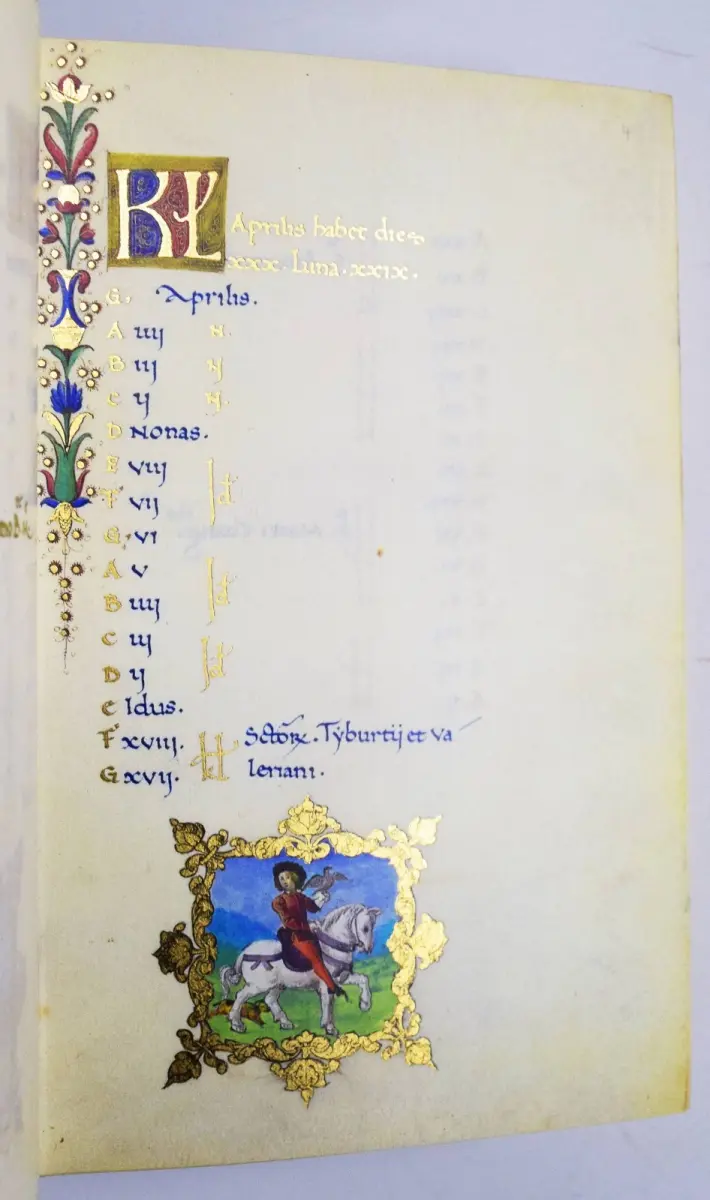 KL Aprilis habet dies
xxx. Luna. xxix.
G. Aprilis.
A iiij N.
B iij
c ij N.
D Nonas.
E viij Id
F vij
G. vi
A v Id
B iiij
c iij Id
D ij
e Idus.
F xviij. kl Sctōꝝ. Tyburtij et va
G xvij. leriani.